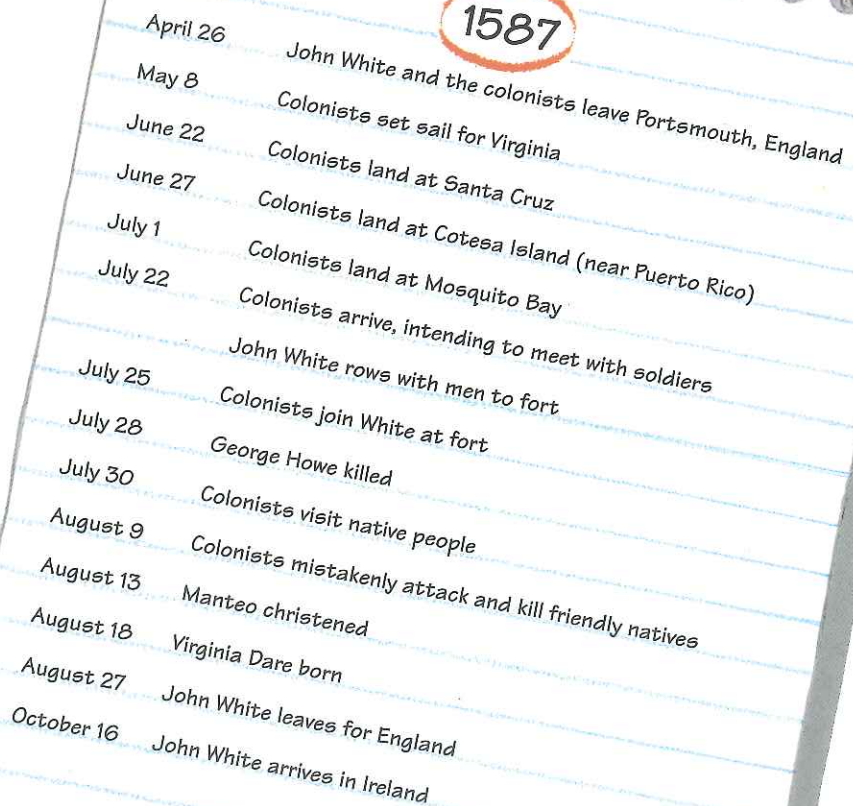 1587
April 26 John White and the colonists leave Portsmouth, England
May 8 Colonists set sail for Virginia
June 22 Colonists land at Santa Cruz
June 27 Colonists land at Cotesa Island (near Puerto Rico)
July 1 Colonists land at Mosquito Bay
July 22 Colonists arrive, intending to meet with soldiers
John White rows with men to fort
July 25 Colonists join White at fort
July 28 George Howe killed
July 30 Colonists visit native people
August 9 Colonists mistakenly attack and kill friendly natives
August 13 Manteo christened
August 18 Virginia Dare born
August 27 John White leaves for England
October 16 John White arrives in Ireland